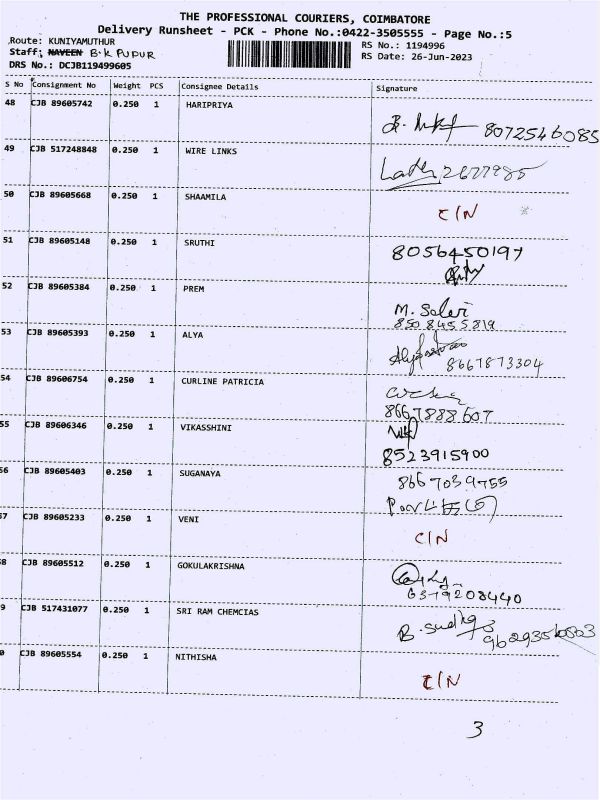 THE PROFESSIONAL COURIERS, COIMBATORE
Delivery Runsheet - PCK - Phone No.:0422-3505555 - Page No.:5
Route: KUNIYAMUTHUR
RS No.: 1194996
Staff: NAVEEN B.K PUDUR
RS Date: 26-Jun-2023
DRS No.: DCJB119499605
S No Consignment No Weight PCS Consignee Details Signature
48 CJB 89605742 0.250 1 HARIPRIYA
8072546085
49 CJB 517248848 0.250 1 WIRE LINKS
2677985
50 CJB 89605668 0.250 1 SHAAMILA
C/N
51 CJB 89605148 0.250 1 SRUTHI
8056450197
52 CJB 89605384 0.250 1 PREM
M. Selvi
8508455819
53 CJB 89605393 0.250 1 ALYA
8667873304
54 CJB 89606754 0.250 1 CURLINE PATRICIA
8667888607
55 CJB 89606346 0.250 1 VIKASSHINI
8523915900
56 CJB 89605403 0.250 1 SUGANAYA
8667039755
57 CJB 89605233 0.250 1 VENI
C/N
8 CJB 89605512 0.250 1 GOKULAKRISHNA
6379208440
9 CJB 517431077 0.250 1 SRI RAM CHEMCIAS
B. Sudha
0 CJB 89605554 0.250 1 NITHISHA
C/N
3